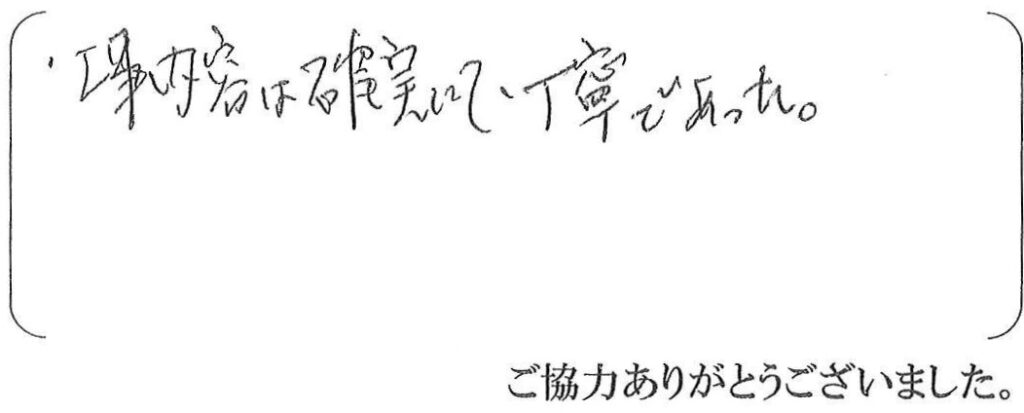 ・工事内容は確実にて、丁寧であった。
ご協力ありがとうございました。